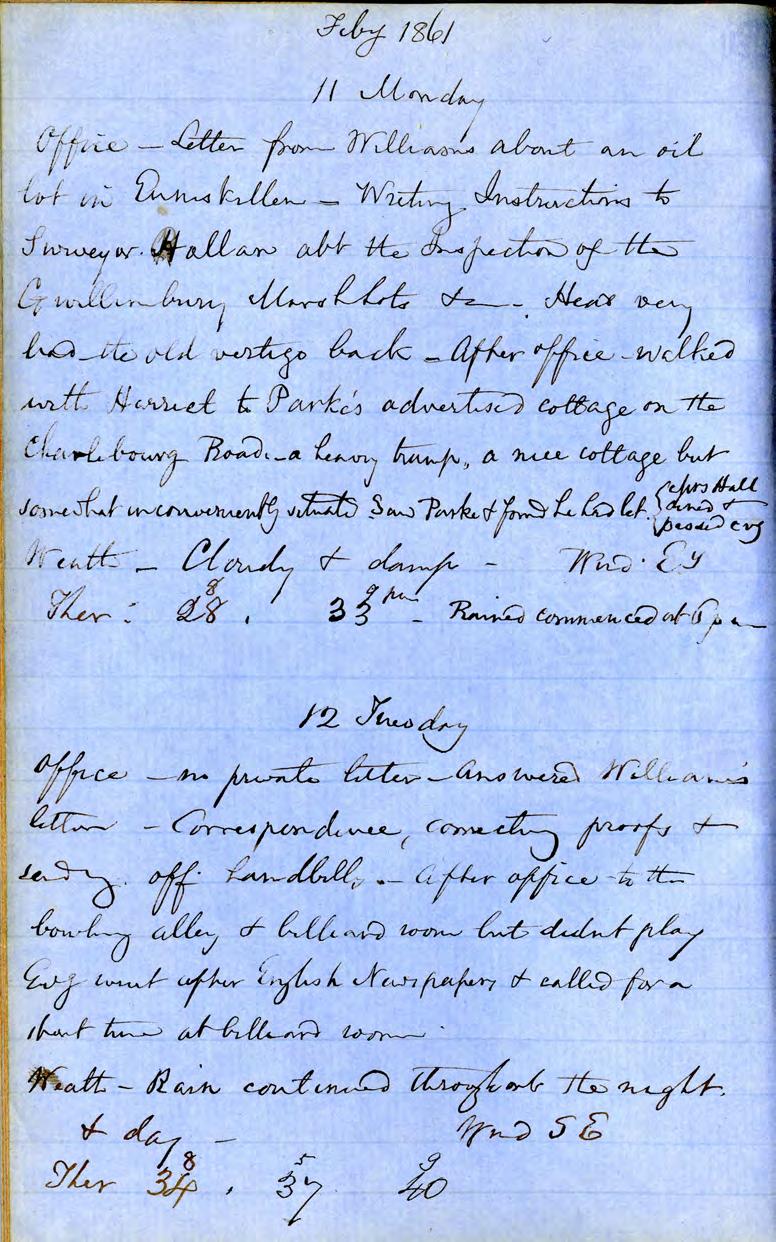 Feby 1861
11 Monday
Office – Letter from Williams about an oil
lot in Enniskillen – Writing Instructions to
Surveyor Hallan abt the Inspection of the
Gwillimbury Marsh lots &c – Head very
bad – the old vertigo back – After office – walked
with Harriet to Parke's advertised cottage on the
Charlebourg Road – a heavy tramp, a nice cottage but
somewhat inconveniently situate Saw Parke & found he had let. {Mrs Hall
dined &
passed evg
Weath – Cloudy & damp – Wind Ey
Ther: 28 8, 33 9 pm – Rained commenced at 6 pm
12 Tuesday
Office – no private letter – Answered William's
letter – Correspondence, correcting proofs &
sendg off handbills. – After office to the
bowling alley & billiard room but didnt play
Evg went after English Newspapers & called for a
short time at billiard room
Weath – Rain continued throughout the night.
& day – Wind S E
Ther 34 8, 37 5 40 9